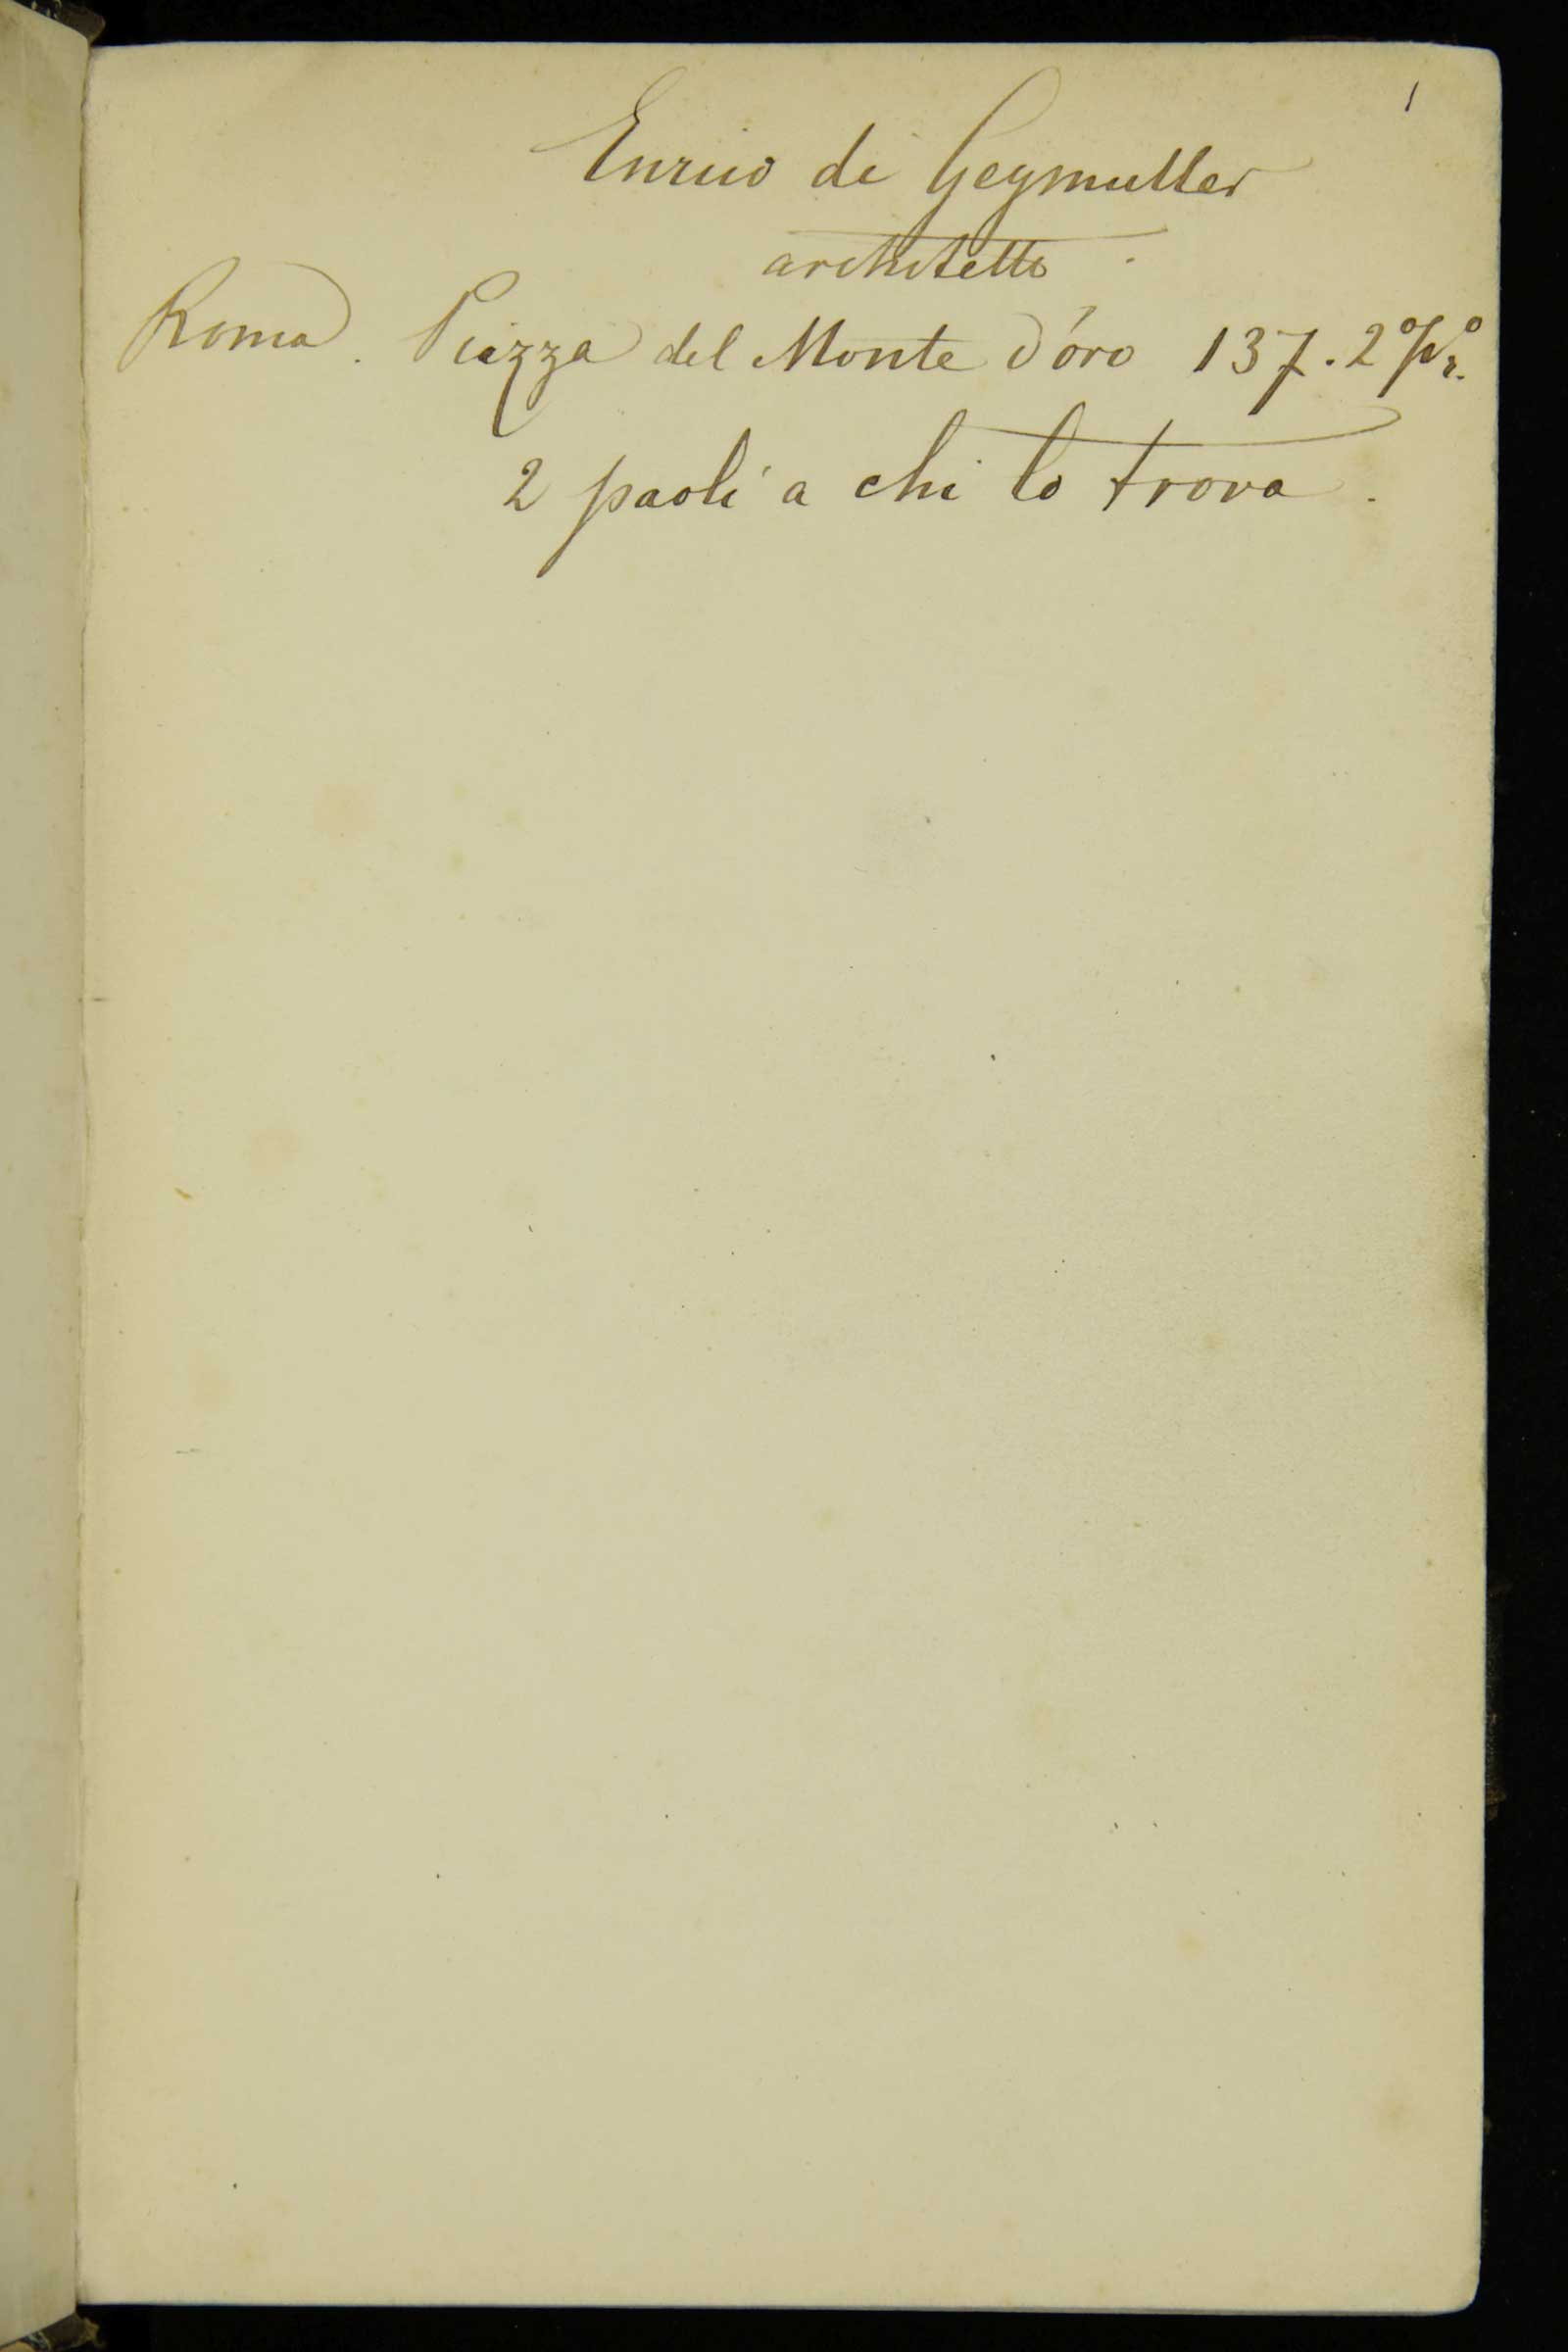 1
Enrico de Geymuller
architetto .
Roma . Piazza del Monte d'oro 137. 2º
2 paoli a chi lo trova .